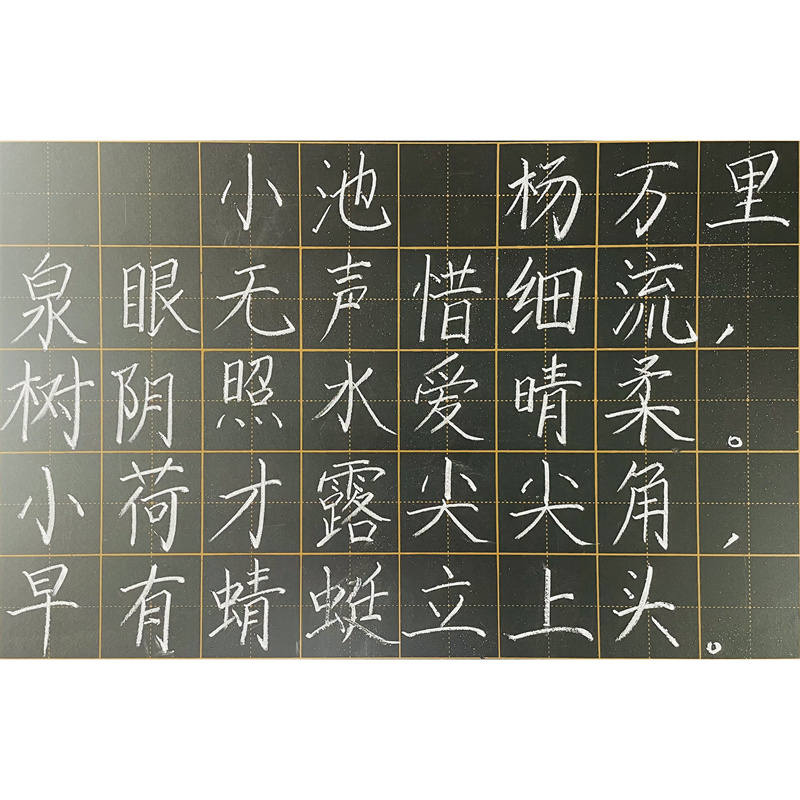 小池 杨万里
泉眼无声惜细流，
树阴照水爱晴柔。
小荷才露尖尖角，
早有蜻蜓立上头。